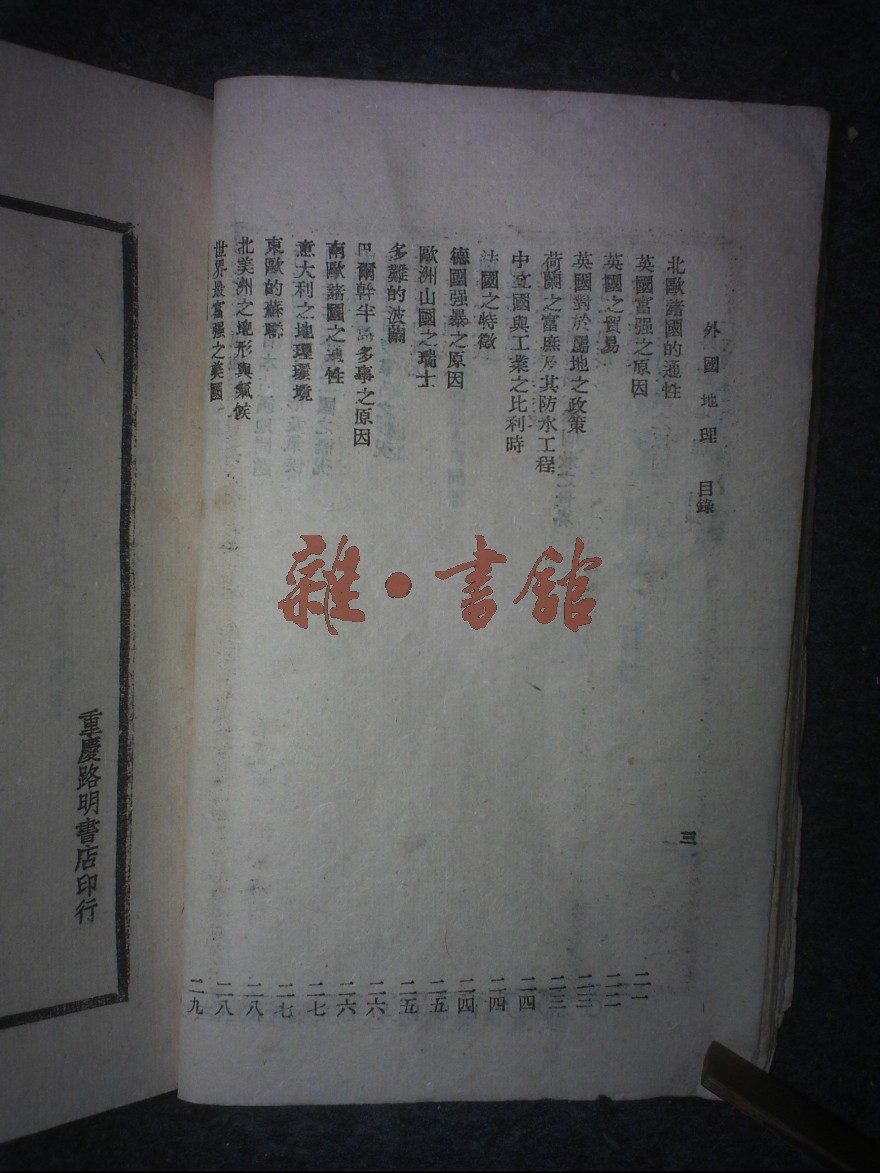 外國地理 目錄 三
北歐諸國的通性 二一
英國富强之原因 二二
英國之貿易 二三
英國對於屬地之政策 二三
荷蘭之富庶及其防水工程 二四
中立國與工業之比利時 二四
法國之特徵 二四
德國强暴之原因 二五
歐洲山國之瑞士 二五
多難的波蘭 二六
巴爾幹半島多事之原因 二六
南歐諸國之通性 二七
意大利之地理環境 二七
東歐的蘇聯 二八
北美洲之地形與氣候 二八
世界最富强之美國 二九
重慶路明書店印行
雜·書館